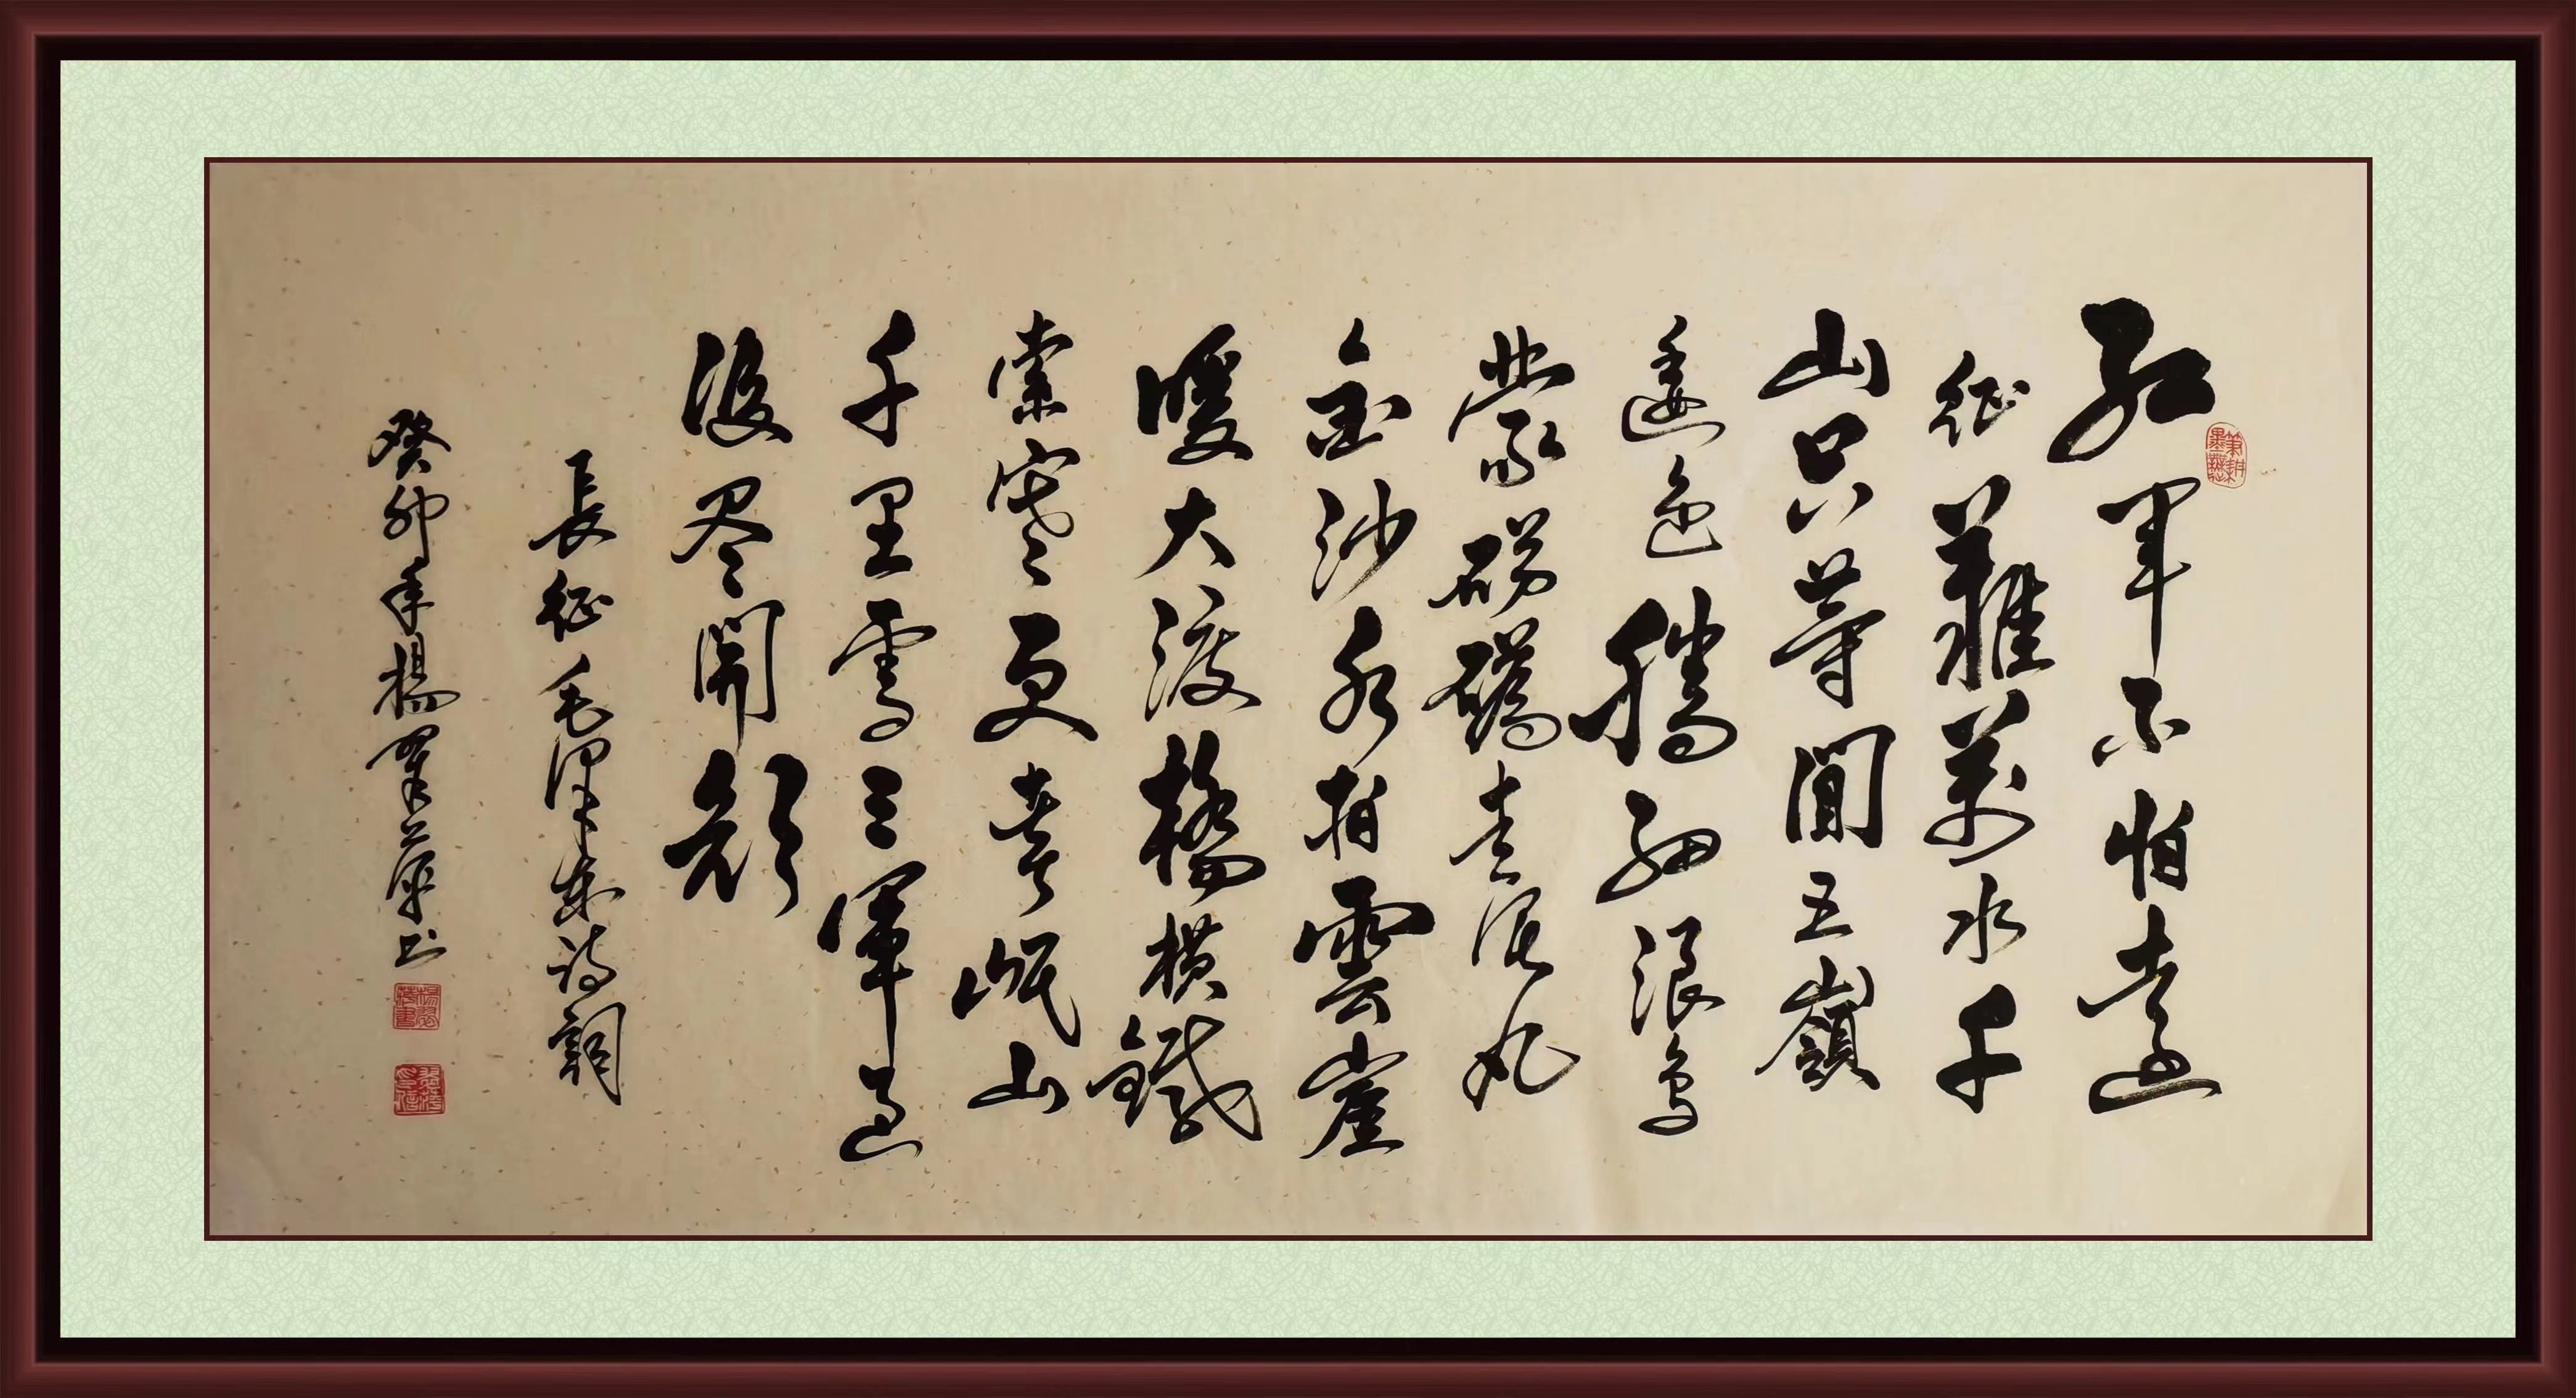 紅軍不怕遠
征難萬水千
山只等閒五嶺
逶迤騰細浪烏
蒙磅礴走泥丸
金沙水拍雲崖
暖大渡橋橫鐵
索寒更喜岷山
千里雪三軍過
後尽開顏
長征毛澤東詩詞
癸卯年楊翠萍书